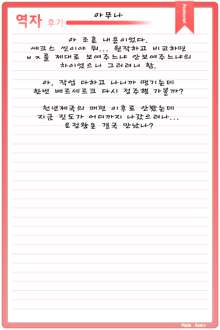 아무나
역자 후기
아 조흔 내용이었다.
섹크스 씬이야 뭐... 원작하고 비교하면
ㅂㅈ를 제대로 보여주느냐 안보여주느냐의
차이였으니 그러려니 함.
아, 작업 다하고 나니까 땡기는데
한번 베르세르크 다시 정주행 가볼까?
천년제국의 매편 이후로 안봤는데
지금 진도가 어디까지 나갔으려나...
요정왕은 결국 만났나?